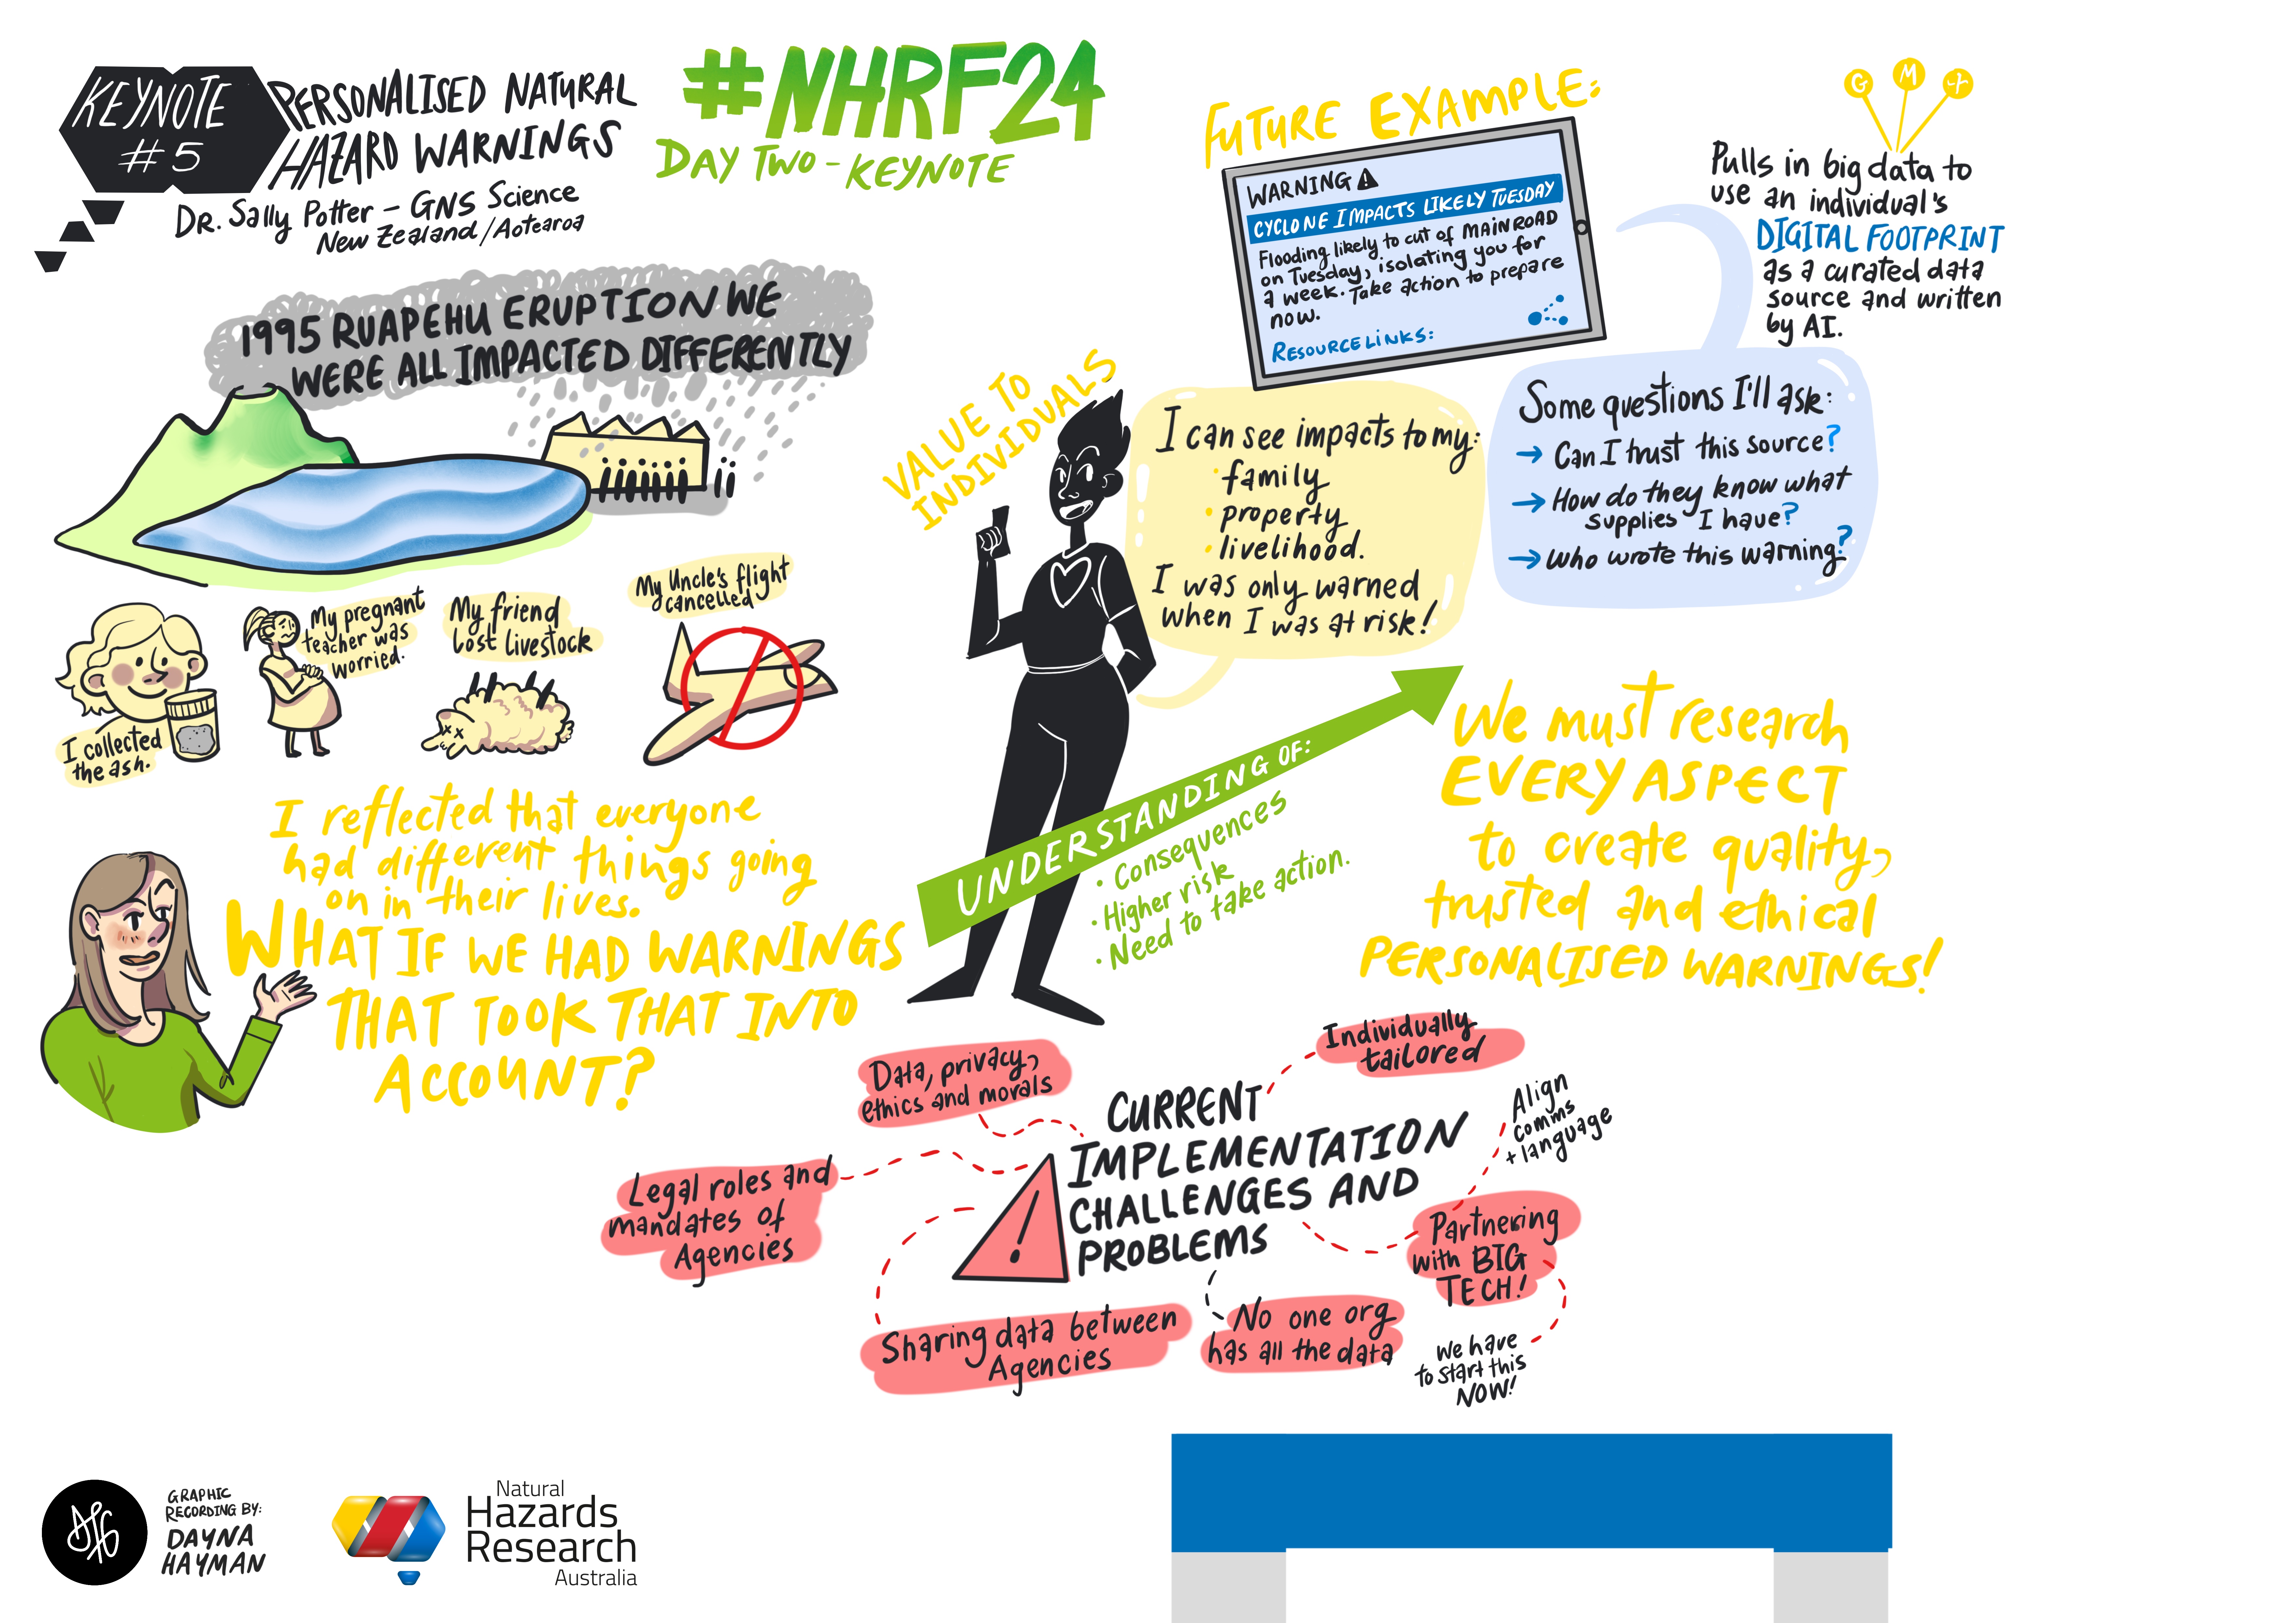 KEYNOTE
#5
PERSONALISED NATURAL
HAZARD WARNINGS
DR. Sally Potter - GNS Science
New Zealand/Aotearoa
#NHRF24
DAY TWO - KEYNOTE
1995 RUAPEHU ERUPTION WE
WERE ALL IMPACTED DIFFERENTLY
I collected
the ash.
My pregnant
teacher was
worried.
My friend
lost livestock
My Uncle's flight
cancelled
I reflected that everyone
had different things going
on in their lives.
WHAT IF WE HAD WARNINGS
THAT TOOK THAT INTO
ACCOUNT?
FUTURE EXAMPLE:
WARNING
CYCLONE IMPACTS LIKELY TUESDAY
Flooding likely to cut of MAIN ROAD
on Tuesday, isolating you for
a week. Take action to prepare
now.
RESOURCE LINKS:
G M +
Pulls in big data to
use an individual's
DIGITAL FOOTPRINT
as a curated data
source and written
by AI.
VALUE TO
INDIVIDUALS
I can see impacts to my:
• family
• property
• livelihood.
I was only warned
when I was at risk!
Some questions I'll ask:
→ Can I trust this source?
→ How do they know what
supplies I have?
→ Who wrote this warning?
UNDERSTANDING OF:
• Consequences
• Higher risk
• Need to take action.
We must research
EVERY ASPECT
to create quality,
trusted and ethical
PERSONALISED WARNINGS!
CURRENT
IMPLEMENTATION
CHALLENGES AND
PROBLEMS
Data, privacy,
ethics and morals
Legal roles and
mandates of
Agencies
Sharing data between
Agencies
No one org
has all the data
Individually
tailored
Align
comms
+ language
Partnering
with BIG
TECH!
We have
to start this
NOW!
GRAPHIC
RECORDING BY:
DAYNA
HAYMAN
Natural
Hazards
Research
Australia